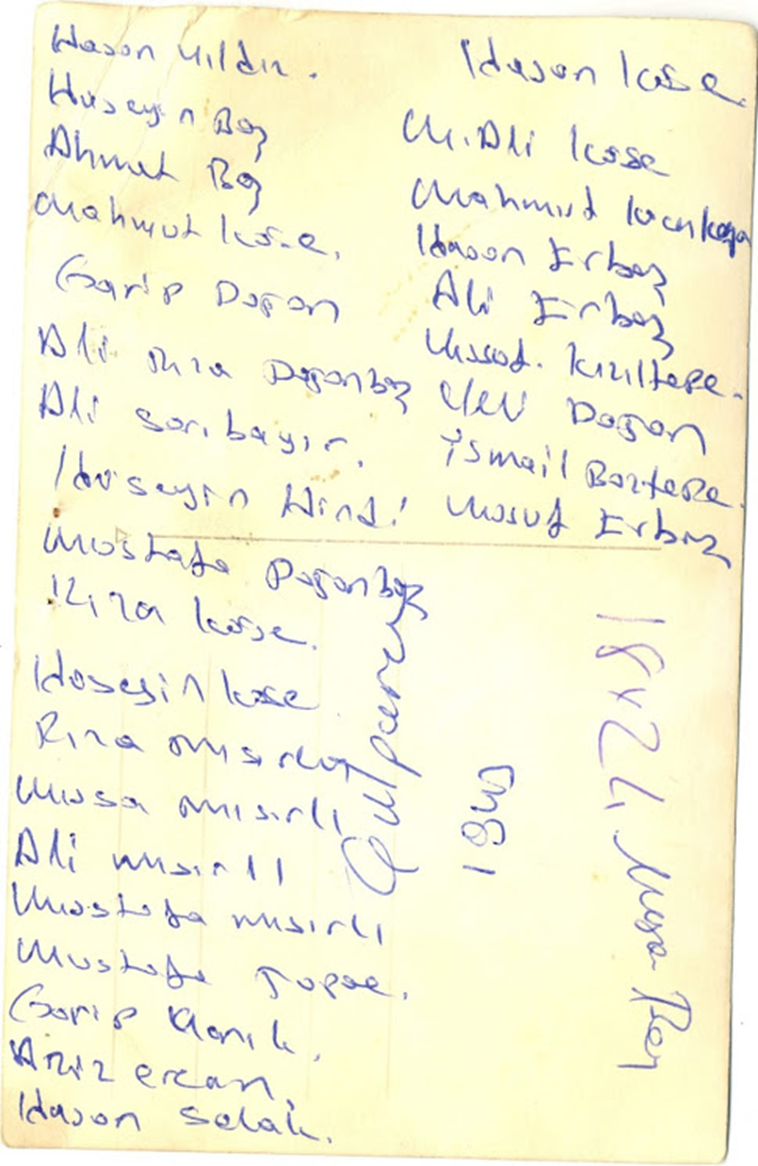 Hasan Yıldız.
Huseyin Boz
Ahmet Boz
Mahmut Köse.
Garip Dogan
Ali Rıza Doganboz
Ali Sarıbayır.
Huseyin Hindi
Mustafa Doganboz
Rıza Köse.
Huseyin Kose
Rıza Mısırlı
Musa Mısırlı
Ali Mısırlı
Mustafa Mısırlı
Mustafa
Garip
Aziz ercan.
Hasan Selak.
Hasan Köse
M. Ali Köse
Mahmut
Hasan Erboz
Ali Erboz
Yusuf. Kızıltepe.
Dogan
ismail Boztepe.
Yusuf Erboz
18x24 Musa Bey